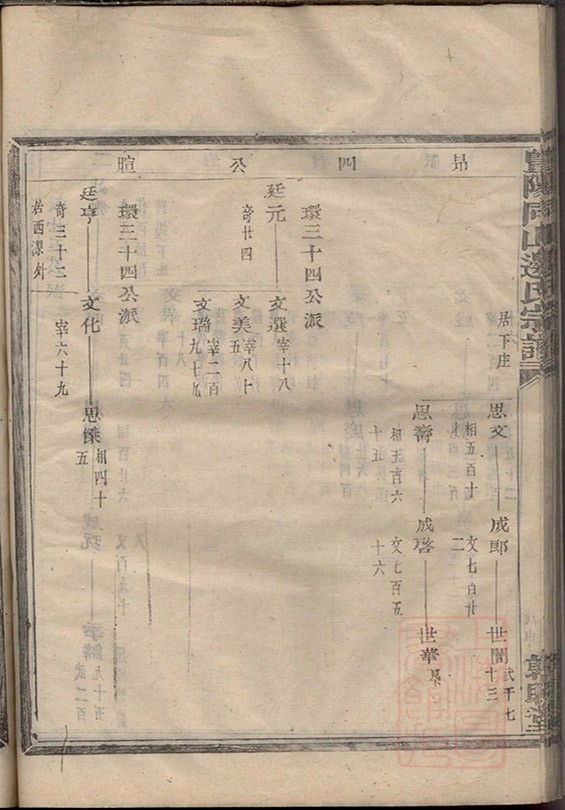 暨陽同山邊氏宗譜
昂四公暄
居下庄
思文 相五百十
成郎 文七百廿二
世閣 貳千七十三
思壽 相五百六十五
成啓 文七百五十六
世華
環三十四公派
廷元 奇廿四
文選 宰十八
文美 宰八十五
文瑞 宰二百九十九
環三十四公派
廷亨 奇三十二
居西湶圤
文化 宰六十九
思傑 相四十五